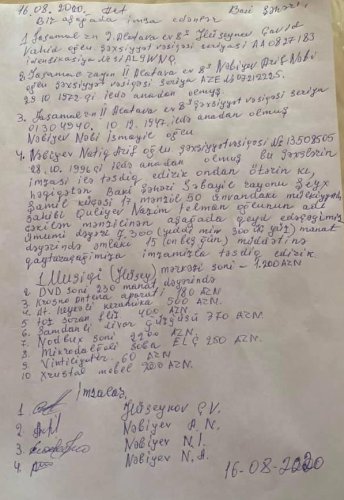 16.08.2020. Akt Bakı şəhəri.
Biz aşağıda imza edənlər
1. Yasamal r-n Z. Əlatava ev 8³ Hüseynov Cavid
Vahid oğlu şəxsiyyət vəsiqəsi seriyası AA0827183
2. Yasamal rayon II Əlatava ev 8³ Nəbiyev Arif Nəbi
oğlu şəxsiyyət vəsiqəsi seriya AZE
29.10.1972-ci ildə anadan olmuş
3. Yasamal r-n II Əlatava ev 8³ şəxsiyyət vəsiqəsi seriya
01304940. 10.12.1947. ildə anadan olmuş
Nəbiyev Nəbi İsmayıl oğlu
4. Nəbiyev Natiq Arif oğlu şəxsiyyət vəsiqəsi № 13508505
28.10.1996 cı ildə anadan olmuş bu şəxslərin
imzası ilə təsdiq edirik ondan ötərin ki,
həqiqətən Bakı şəhəri Səbayıl rayonu Şeyx
Şamil küçəsi 17 mənzil 50 ünvandakı mülkiyyətin
sahibi Quliyev Nazim Telman oğlunun adı
çəkilən mənzilinən aşağada qeyd edəcəyimiz
ümumi dəyəri 7.300 (yeddi min 300 üç yüz) manat
dəyərində əmlakı 15 (on beş gün) müddətinə
qaytaracağımıza imzamızla təsdiq edirik.
1 Musiqi mərkəzi soni - 1.200 AZN
2 DVD soni 230 manat dəyərində
3 Krosna antena aparatı 180 AZN
4. At. heykəli keramika 500 AZN
5 toz soran Elit 400 AZN
6. Şamdanlı divar güzgüsü 770 AZN
7. Nodbux soni AZN
8 Mikrodalğalı soba ELÇ 250 AZN.
9 Vintilyator. 60 AZN
10 Xrustal mebel 200 AZN.
İmzalar
1 Hüseynov C.V.
2. Nəbiyev A.N.
3. Nəbiyev N.İ.
4. Nəbiyev N.A.
16-08-2020